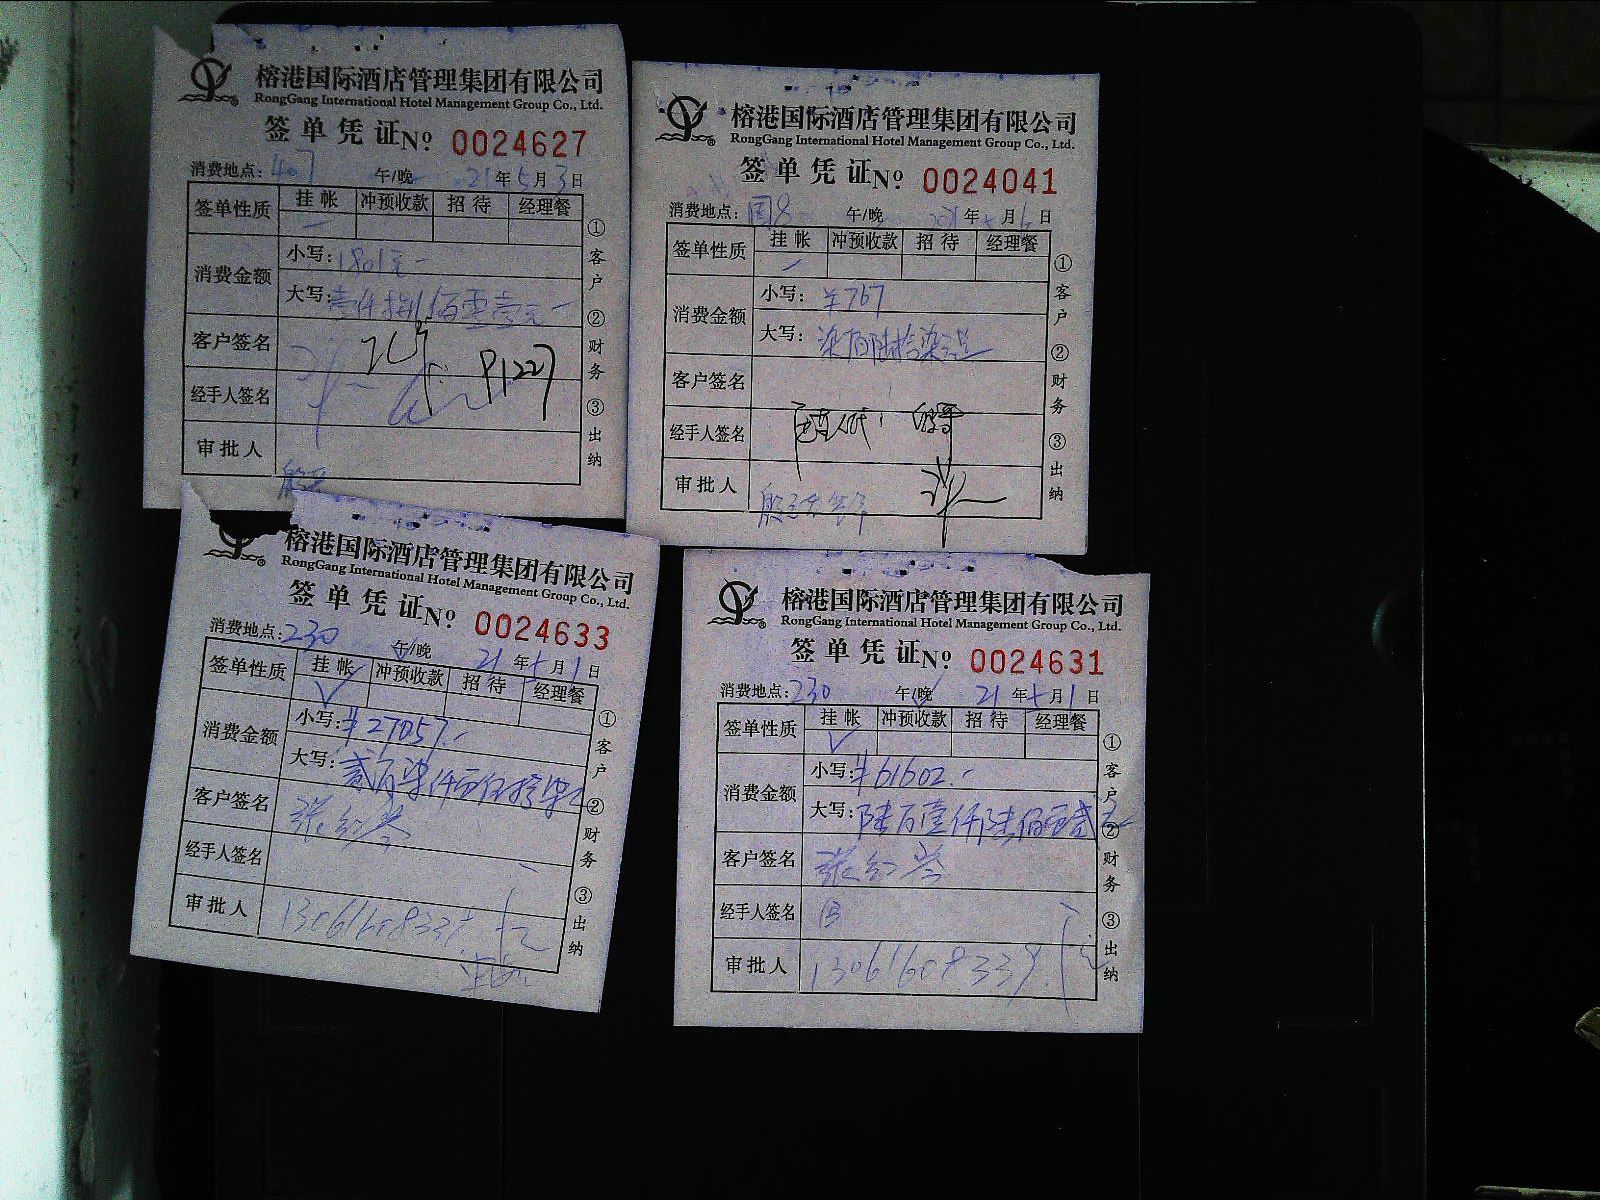 榕港国际酒店管理集团有限公司
RongGang International Hotel Management Group Co., Ltd.
签单凭证 Nº 0024627
消费地点: 407 午/晚 21 年 5 月 3 日
签单性质 挂帐 冲预收款 招待 经理餐
消费金额 小写: 1801元
大写: 壹仟捌佰零壹元
客户签名 P1227
经手人签名
审批人
① 客户 ② 财务 ③ 出纳
榕港国际酒店管理集团有限公司
RongGang International Hotel Management Group Co., Ltd.
签单凭证 Nº 0024041
消费地点: 午/晚 年 月 日
签单性质 挂帐 冲预收款 招待 经理餐
消费金额 小写: ¥767
大写: 柒佰陆拾柒元
客户签名
经手人签名
审批人
① 客户 ② 财务 ③ 出纳
榕港国际酒店管理集团有限公司
RongGang International Hotel Management Group Co., Ltd.
签单凭证 Nº 0024633
消费地点: 230 午/晚 21 年 月 1 日
签单性质 挂帐 冲预收款 招待 经理餐
消费金额 小写: ¥27057.-
大写: 贰万柒仟零伍拾柒元
客户签名 张
经手人签名
审批人
① 客户 ② 财务 ③ 出纳
榕港国际酒店管理集团有限公司
RongGang International Hotel Management Group Co., Ltd.
签单凭证 Nº 0024631
消费地点: 230 午/晚 21 年 月 1 日
签单性质 挂帐 冲预收款 招待 经理餐
消费金额 小写: ¥61602.-
大写: 陆万壹仟陆佰零贰元
客户签名 张
经手人签名
审批人 13061608339
① 客户 ② 财务 ③ 出纳